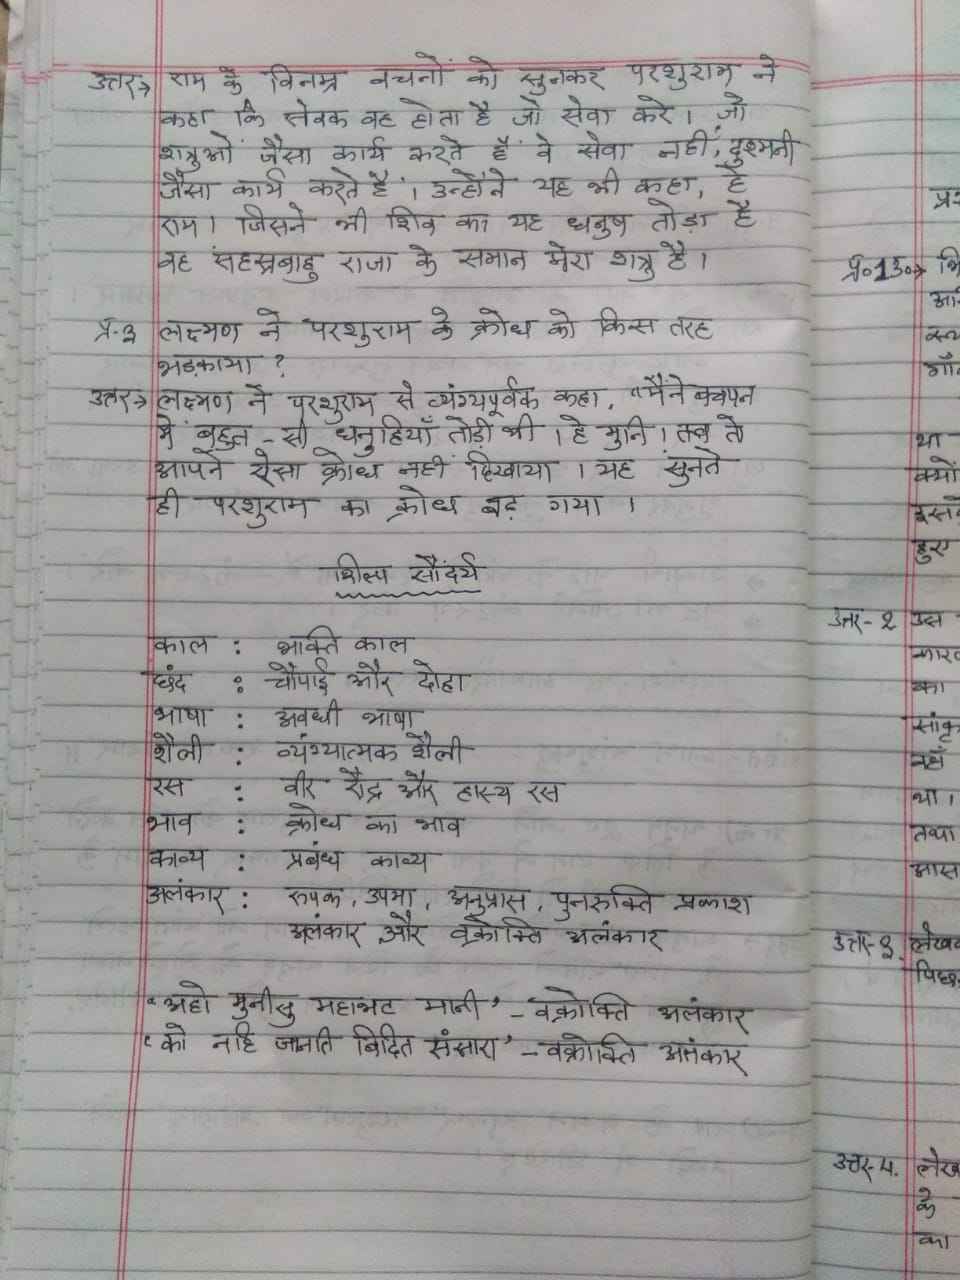 उत्तर→ राम के विनम्र वचनों को सुनकर परशुराम ने
कहा कि सेवक वह होता है जो सेवा करे। जो
शत्रुओं जैसा कार्य करते हैं वे सेवा नहीं, दुश्मनी
जैसा कार्य करते हैं। उन्होंने यह भी कहा, हे
राम। जिसने भी शिव का यह धनुष तोड़ा है
वह सहस्रबाहु राजा के समान मेरा शत्रु है।
प्र.3 लक्ष्मण ने परशुराम के क्रोध को किस तरह
भड़काया ?
उत्तर→ लक्ष्मण ने परशुराम से व्यंग्यपूर्वक कहा, "मैंने बचपन
में बहुत-सी धनुहियाँ तोड़ी थी। हे मुनि। तब तो
आपने ऐसा क्रोध नहीं दिखाया। यह सुनते
ही परशुराम का क्रोध बढ़ गया।
शिल्प सौंदर्य
काल : भक्ति काल
छंद : चौपाई और दोहा
भाषा : अवधी भाषा
शैली : व्यंग्यात्मक शैली
रस : वीर रौद्र और हास्य रस
भाव : क्रोध का भाव
काव्य : प्रबंध काव्य
अलंकार : रुपक, उपमा, अनुप्रास, पुनरुक्ति प्रकाश
अलंकार और वक्रोक्ति अलंकार
'अहो मुनीसु महाभट मानी' - वक्रोक्ति अलंकार
'को नहि जानति बिदित संसारा' - वक्रोक्ति अलंकार
प्र०15०→
था
क्यों
हुए
उत्तर-2 उस
का
नहीं
था।
तथा
उत्तर-3.
उत्तर-4.
के
का